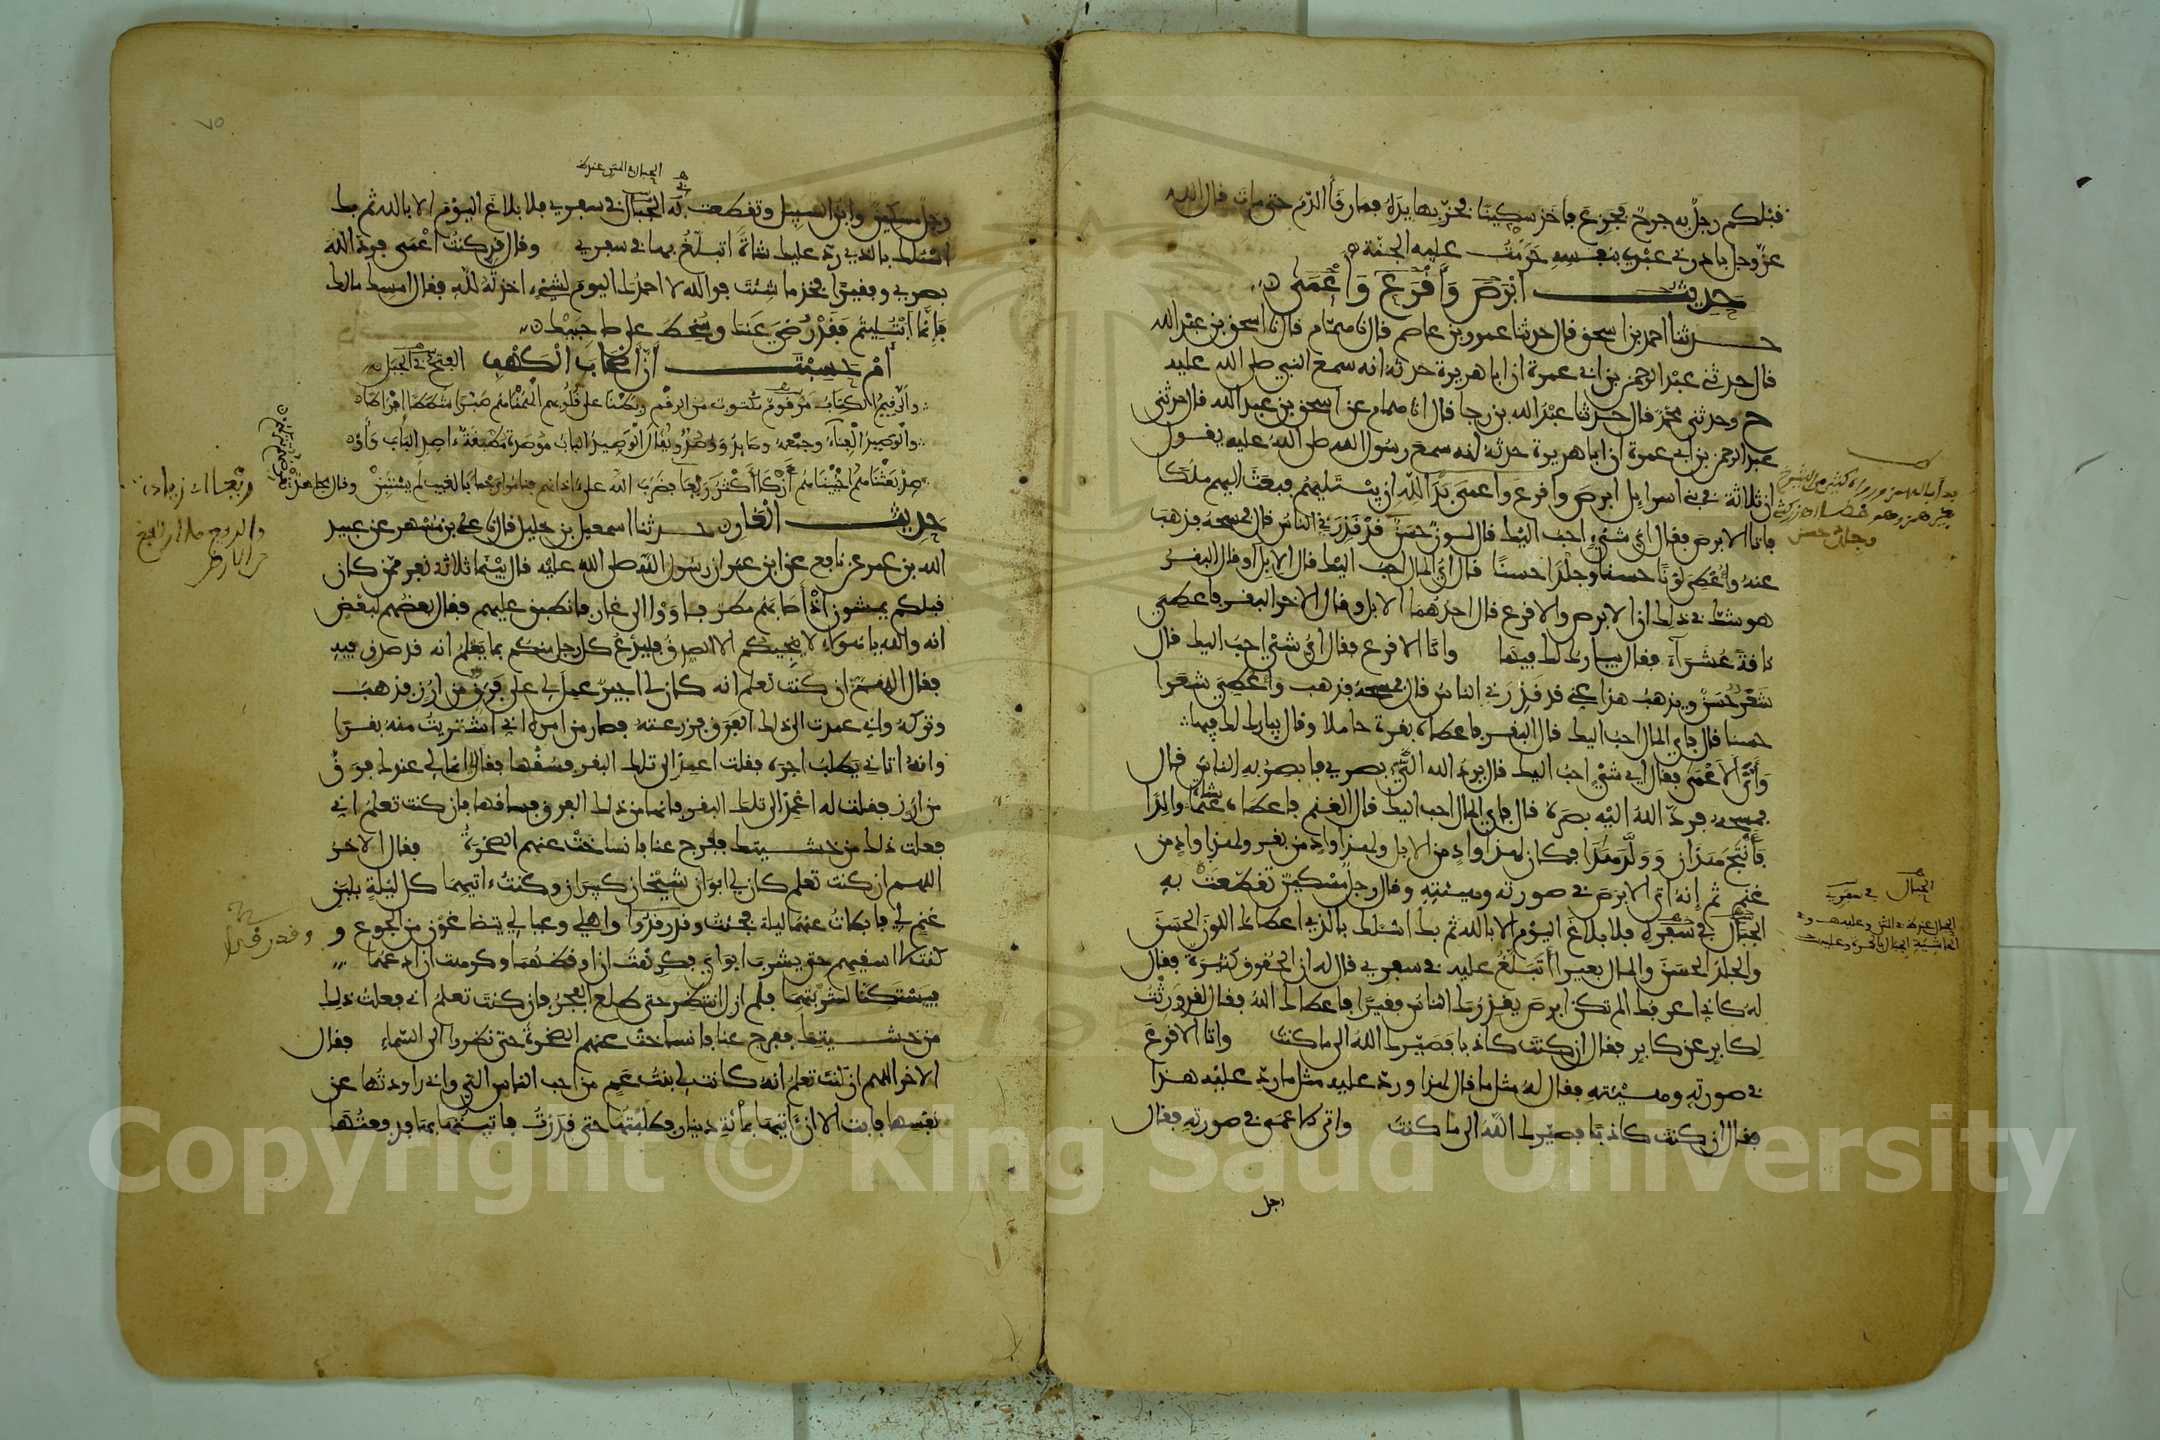 قبلكم رجل به جرح فجزع فاخذ سكينا فحز بها يده فما رقأ الدم حتى مات قال الله
عز وجل بادرني عبدي بنفسه حرمت عليه الجنة
حديث ابرص وأقرع وأعمى
حدثنا احمد بن اسحق قال حدثنا عمرو بن عاصم قال نا همام قال نا اسحق بن عبد الله
قال حدثني عبد الرحمن بن ابي عمرة ان ابا هريرة حدثه انه سمع النبي صلى الله عليه
ح وحدثني محمد قال حدثنا عبد الله بن رجا قال انا همام عن اسحق بن عبد الله قال حدثني
عبد الرحمن بن ابي عمرة ان ابا هريرة حدثه انه سمع رسول الله صلى الله عليه يقول
ان ثلاثة في بني اسراءيل ابرص واقرع واعمى بدا لله ان يبتليهم فبعث اليهم ملكا
فاتى الابرص فقال اي شيء احب اليك قال لون حسن قد قذرني الناس قال فمسحه فذهب
عنه وأعطي لونا حسنا وجلدا حسنا قال اي المال احب اليك قال الابل أو قال البقر
هو شك في ذلك ان الابرص والاقرع قال احدهما الابل وقال الاخر البقر فاعطي
ناقة عشراء فقال يبارك لك فيها واتى الاقرع فقال اي شيء احب اليك قال
شعر حسن ويذهب هذا عني قد قذرني الناس قال فمسحه فذهب وأعطي شعرا
حسنا قال فاي المال احب اليك قال البقر فاعطاه بقرة حاملا وقال يبارك لك فيها
وأتى الأعمى فقال اي شيء احب اليك قال يرد الله الي بصري فابصر به الناس قال
فمسحه فرد الله اليه بصره قال فاي المال احب اليك قال الغنم فاعطاه شاة والدا
فأنتج هذان وولد هذا فكان لهذا واد من الابل ولهذا واد من بقر ولهذا واد من
غنم ثم إنه اتى الابرص في صورته وهيئته وقال رجل مسكين تقطعت به
الحبال في سفره فلا بلاغ اليوم الا بالله ثم بك اسئلك بالذي اعطاك اللون الحسن
والجلد الحسن والمال بعيرا أتبلغ عليه في سفري قال له ان الحقوق كثيرة فقال
له كاني اعرفك الم تكن ابرص يقذرك الناس فقيرا فاعطاك الله فقال لقد ورثت
لكابر عن كابر فقال ان كنت كاذبا فصيرك الله الى ما كنت واتى الاقرع
في صورته وهيئته فقال له مثل ما قال لهذا ورد عليه مثل ما رد عليه هذا
فقال ان كنت كاذبا فصيرك الله الى ما كنت واتى الاعمى في صورته فقال
رجل
الحبال في سفري
٧٥
رجل مسكين وابن السبيل وتقطعت به الحبال في سفري فلا بلاغ اليوم الا بالله ثم بك
اسئلك بالذي رد عليك شاة اتبلغ بها في سفري وقال قد كنت أعمى فرد الله
بصري وفقيرا فخذ ما شئت فوالله لا احمدك اليوم لشيء اخذته لله فقال امسك مالك
فإنما ابتليتم فقد رضي عنك وسخط على صاحبيك
أم حسبت أن أصحاب الكهف الفتح في الجبل
والرقيم الكتاب مرقوم مكتوب من الرقم ربطنا على قلوبهم الهمناهم صبرا شططا إفراطا
والوصيد الفناء وجمعه وصائد ووصد ويقال الوصيد الباب مؤصدة مطبقة ءاصد الباب وأوصد
بعثناهم أحييناهم أزكى أكثر ريعا فضرب الله على ءاذانهم فناموا رجما بالغيب لم يستبن وقال مجاهد
حديث الغار حدثنا اسمعيل بن خليل قال نا علي بن مسهر عن عبيد
الله بن عمر عن نافع عن ابن عمر ان رسول الله صلى الله عليه قال بينما ثلاثة نفر ممن كان
قبلكم يمشون إذ أصابهم مطر فاووا الى غار فانطبق عليهم فقال بعضهم لبعض
انه والله يا هؤلاء لا ينجيكم الا الصدق فليدع كل رجل منكم بما يعلم انه قد صدق فيه
فقال اللهم ان كنت تعلم انه كان لي اجير عمل لي على فرق من ارز فذهب
وتركه واني عمدت الى ذلك الفرق فزرعته فصار من امره اني اشتريت منه بقرا
وانه اتاني يطلب اجره فقلت اعمد الى تلك البقر فسقها فقال انما لي عندك فرق
من ارز فقلت له اعمد الى تلك البقر فانها من ذلك الفرق فساقها فان كنت تعلم اني
فعلت ذلك من خشيتك ففرج عنا فانساخت عنهم الصخرة فقال الاخر
اللهم ان كنت تعلم كان لي ابوان شيخان كبيران وكنت ءاتيهما كل ليلة بلبن
غنم لي فابطات عنهما ليلة فجئت وقد رقدوا واهلي وعيالي يتضاغون من الجوع و
كنت لا اسقيهم حتى يشرب ابواي فكرهت ان اوقظهما وكرهت ان ادعهما
فيستكنا لشربتهما فلم ازل انتظر حتى طلع الفجر فان كنت تعلم اني فعلت ذلك
من خشيتك ففرج عنا فانساخت عنهم الصخرة حتى نظروا الى السماء فقال
الاخر اللهم ان كنت تعلم انه كانت لي بنت عم من احب الناس الي واني راودتها عن
نفسها فابت الا ان ءاتيها بمائة دينار فطلبتها حتى قدرت فاتيتها بها فدفعتها
Copyright © King Saud University